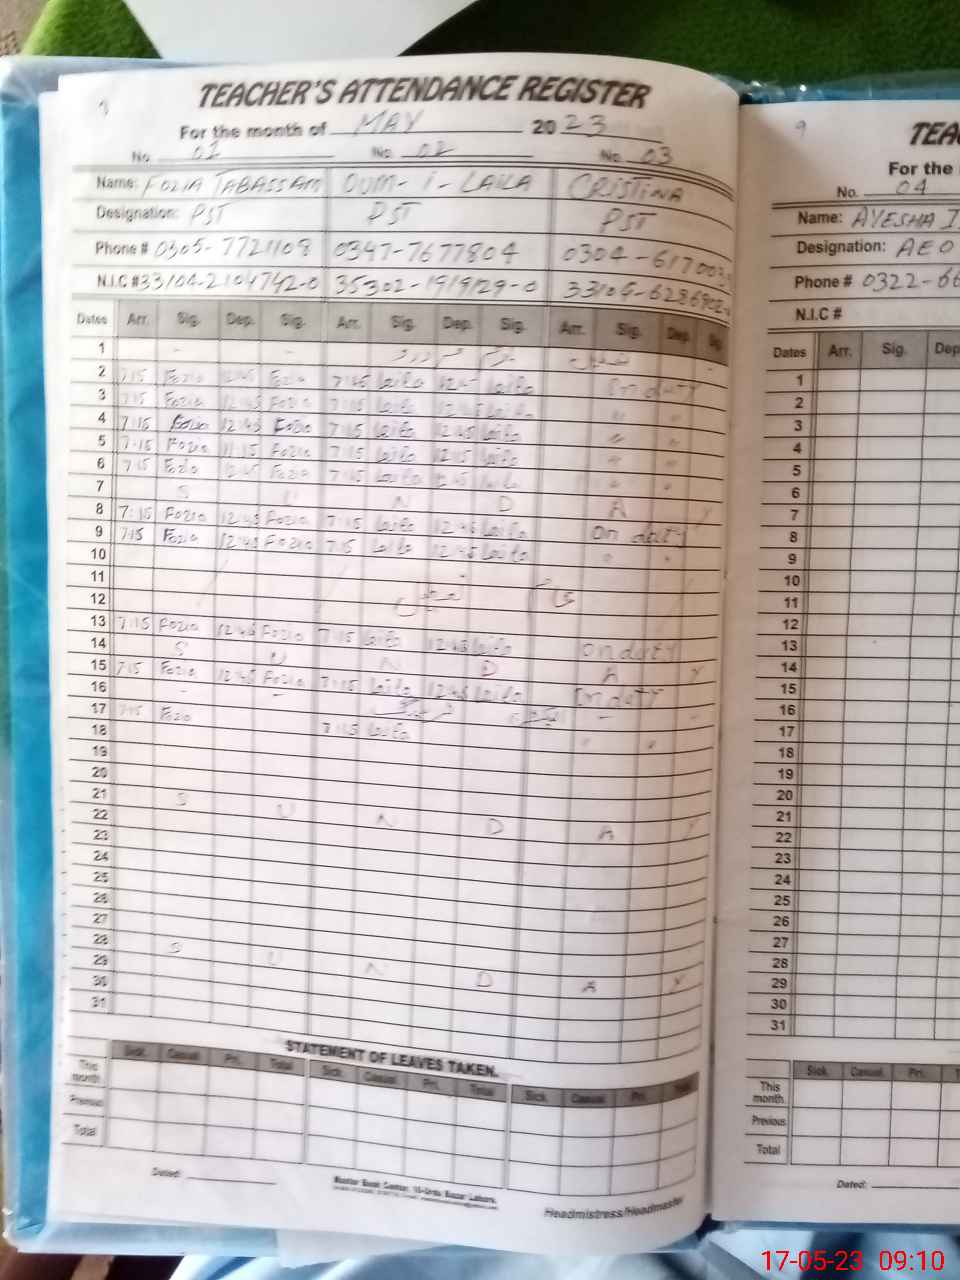 TEACHER'S ATTENDANCE REGISTER
For the month of MAY 2023
No. 01 No. 02 No. 03
Name: FOZIA TABASSAM OUM-I-LAILA CRISTINA
Designation: PST PST PST
Phone # 0305-7721108 0347-7677804 0304-617003
N.I.C # 33104-2104742-0 35302-1919129-0
Dates Arr. Sig. Dep. Sig. Arr. Sig. Dep. Sig. Arr. Sig. Dep. Sig.
1 - -
2 7:15 Fozia 12:45 Fozia Laila 12:45 Laila On duty
3 7:15 Fozia 12:45 Fozia 7:15 Laila 12:45 Laila " "
4 7:15 Fozia 12:45 Fozia 7:15 Laila 12:45 Laila " "
5 7:15 Fozia Fozia 7:15 Laila Laila " "
6 7:15 Fozia 12:45 Fozia 7:15 Laila Laila " "
7 S U N D A Y
8 7:15 Fozia 12:45 Fozia 7:15 Laila 12:45 Laila On duty
9 7:15 Fozia 12:45 Fozia 7:15 Laila 12:45 Laila " "
10
11
12
13 7:15 Fozia 12:45 Fozia 7:15 Laila 12:45 Laila On duty
14 S U N D A Y
15 7:15 Fozia 12:45 Fozia 7:15 Laila 12:45 Laila On duty
16 - - - -
17 7:15 Fozia 7:15 Laila " "
18
19
20
21 S U N D A Y
22
23
24
25
26
27
28 S U N D A Y
29
30
31
STATEMENT OF LEAVES TAKEN.
Sick. Casual Pri. Total Sick. Casual Pri. Total Sick. Casual Pri. Total
This month
Previous
Total
Dated:
Master Book Center, 10-Urdu Bazar Lahore.
Headmistress/Headmaster
9
TEA
For the
No. 04
Name: AYESHA I
Designation: AEO
Phone # 0322-66
N.I.C #
Dates Arr. Sig. Dep
1
2
3
4
5
6
7
8
9
10
11
12
13
14
15
16
17
18
19
20
21
22
23
24
25
26
27
28
29
30
31
Sick. Casual. Pri. T
This month
Previous
Total
Dated:
17-05-23 09:10